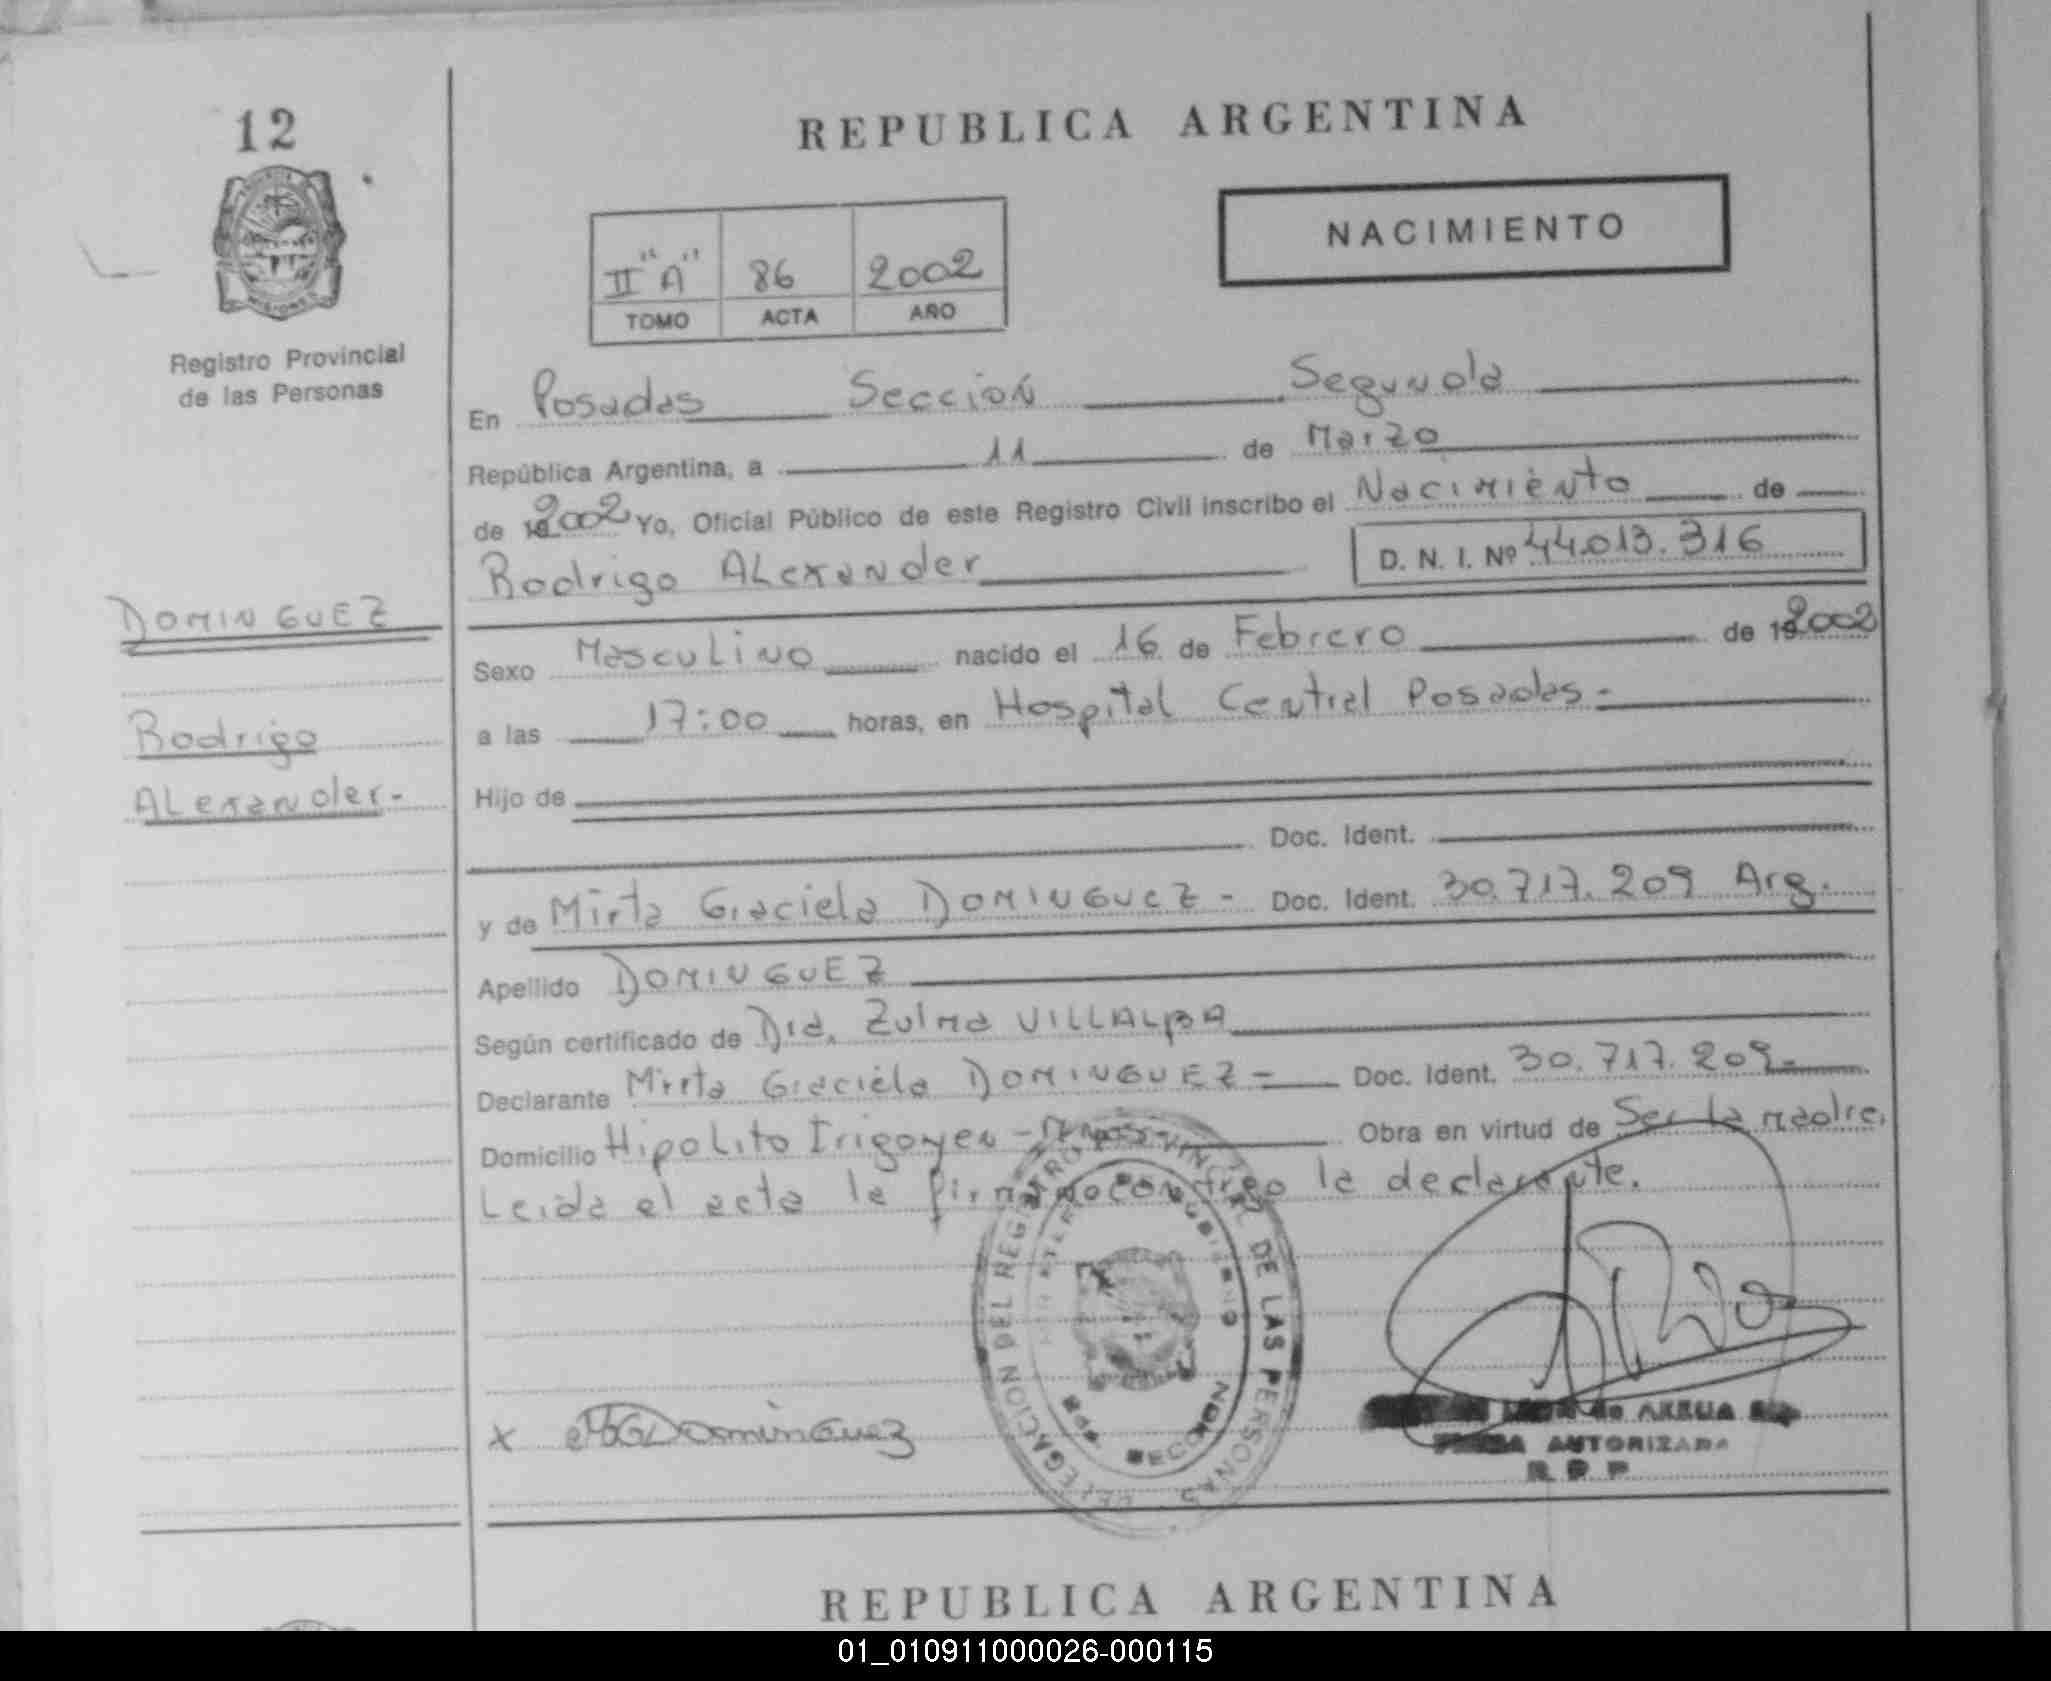 12
REPUBLICA ARGENTINA
NACIMIENTO
II "A" 86 2002
TOMO ACTA AÑO
Registro Provincial
de las Personas
En Posadas Sección Segunda
República Argentina, a 11 de Marzo
de 2002 Yo, Oficial Público de este Registro Civil inscribo el Nacimiento de
Rodrigo ALexander D. N. I. Nº 44.013.316
DOMINGUEZ
Rodrigo
ALexander.-
Sexo MascuLino nacido el 16 de Febrero de 2002
a las 17:00 horas, en Hospital Central Posadas.-
Hijo de
Doc. Ident.
y de Mirta Graciela DOMINGUEZ - Doc. Ident. 30.717.209 Arg.
Apellido DOMINGUEZ
Según certificado de Dra. Zulma VILLALBA
Declarante Mirta Graciela DOMINGUEZ - Doc. Ident. 30.717.209.-
Domicilio HipoLito Irigoyen - Obra en virtud de Ser la madre.
Leida el acta la firma conmigo la declarante.
DELEGACION DEL REGISTRO PROVINCIAL DE LAS PERSONAS
x MGDominGuez
AUTORIZADA
R P P
REPUBLICA ARGENTINA
01_010911000026-000115